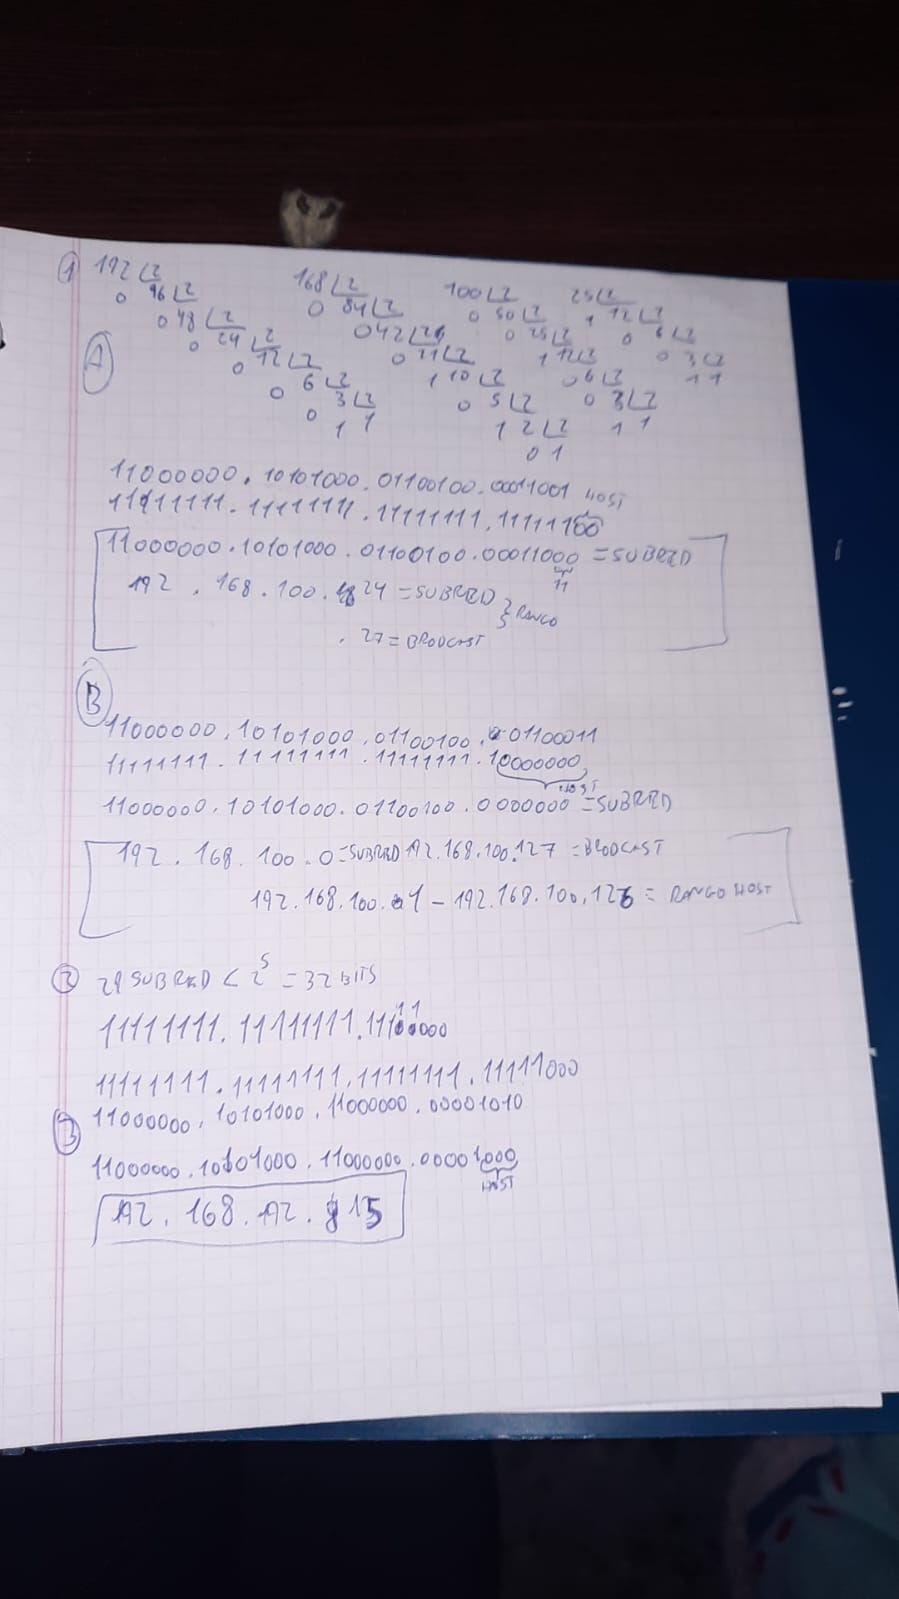 ① 192 ∟2 168 ∟2 100 ∟2 25 ∟2
0 96 ∟2 0 84 ∟2 0 50 ∟2 1 12 ∟2
0 48 ∟2 0 42 ∟2 0 25 ∟2 0 6 ∟2
0 24 ∟2 0 21 ∟2 1 12 ∟2 0 3 ∟2
Ⓐ 0 12 ∟2 1 10 ∟2 0 6 ∟2 1 1
0 6 ∟2 0 5 ∟2 0 3 ∟2
0 3 ∟2 1 2 ∟2 1 1
1 1 0 1
11000000.10101000.01100100.00011001 HOST
11111111.11111111.11111111.11111100
11000000.10101000.01100100.00011000 = SUBRED
11
192 . 168 . 100 . 24 = SUBRED } RANGO
. 27 = BRODCAST
Ⓑ
11000000.10101000.01100100.01100011
11111111.11111111.11111111.10000000
HOST
11000000.10101000.01100100.0000000 = SUBRED
192 . 168 . 100 . 0 = SUBRED 192.168.100.127 = BRODCAST
192.168.100.1 – 192.168.100.126 = RANGO HOST
② 29 SUBRED < 2⁵ = 32 BITS
11
11111111.11111111.11100000
11111111.11111111.11111111.11111000
③ 11000000.10101000.11000000.00001010
11000000.10101000.11000000.00001000
HOST
192 . 168 . 192 . 15